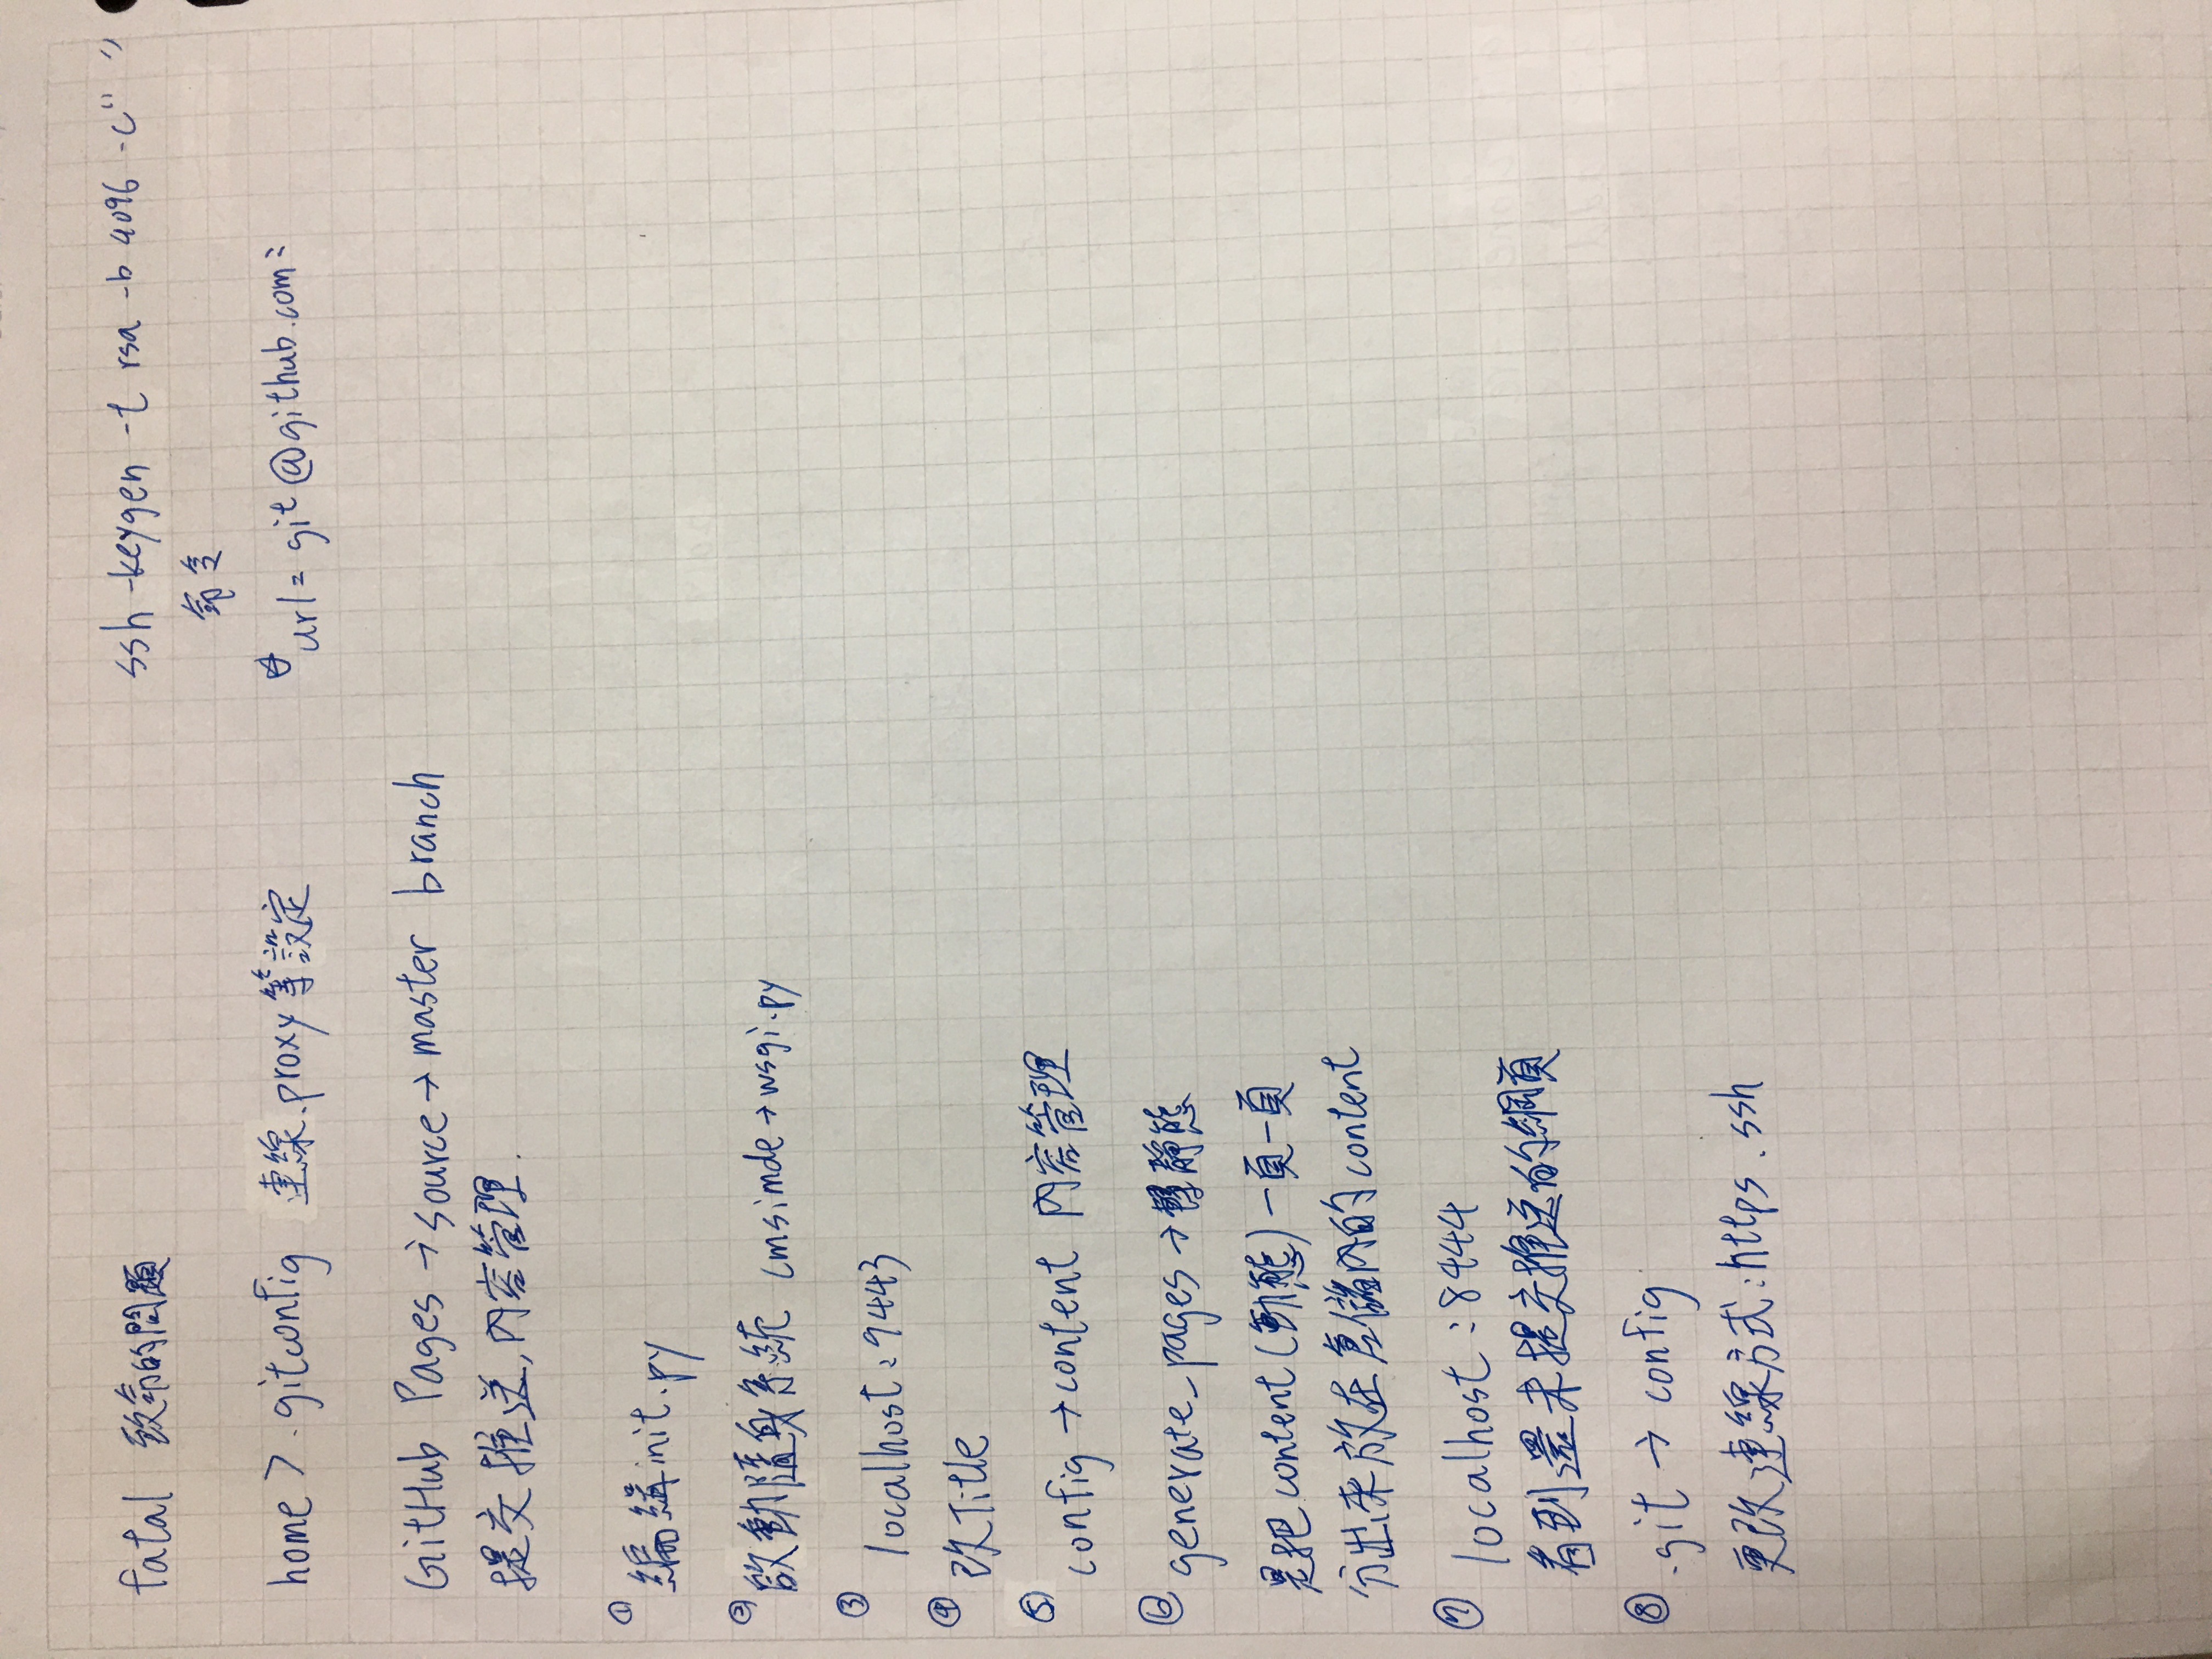 fatal 致命的問題
home > .gitconfig 連線.proxy等設定
GitHub Pages →source→ master branch
提交推送,內容管理.
① 編緝init.py
② 啟動隨身系統 cmsimde→wsgi.py
③ localhost:9443
④ 改Title
⑤ config →content 內容管理
⑥ generate_pages → 轉靜態
是把content(動態)一頁一頁
分出來放在倉儲內的content
⑦ localhost:8444
看到還未提交推送的網頁
⑧ .git → config
更改連線方式:https.ssh
ssh -keygen -t rsa -b 4096 -c" "
命令
url= git@github.com: